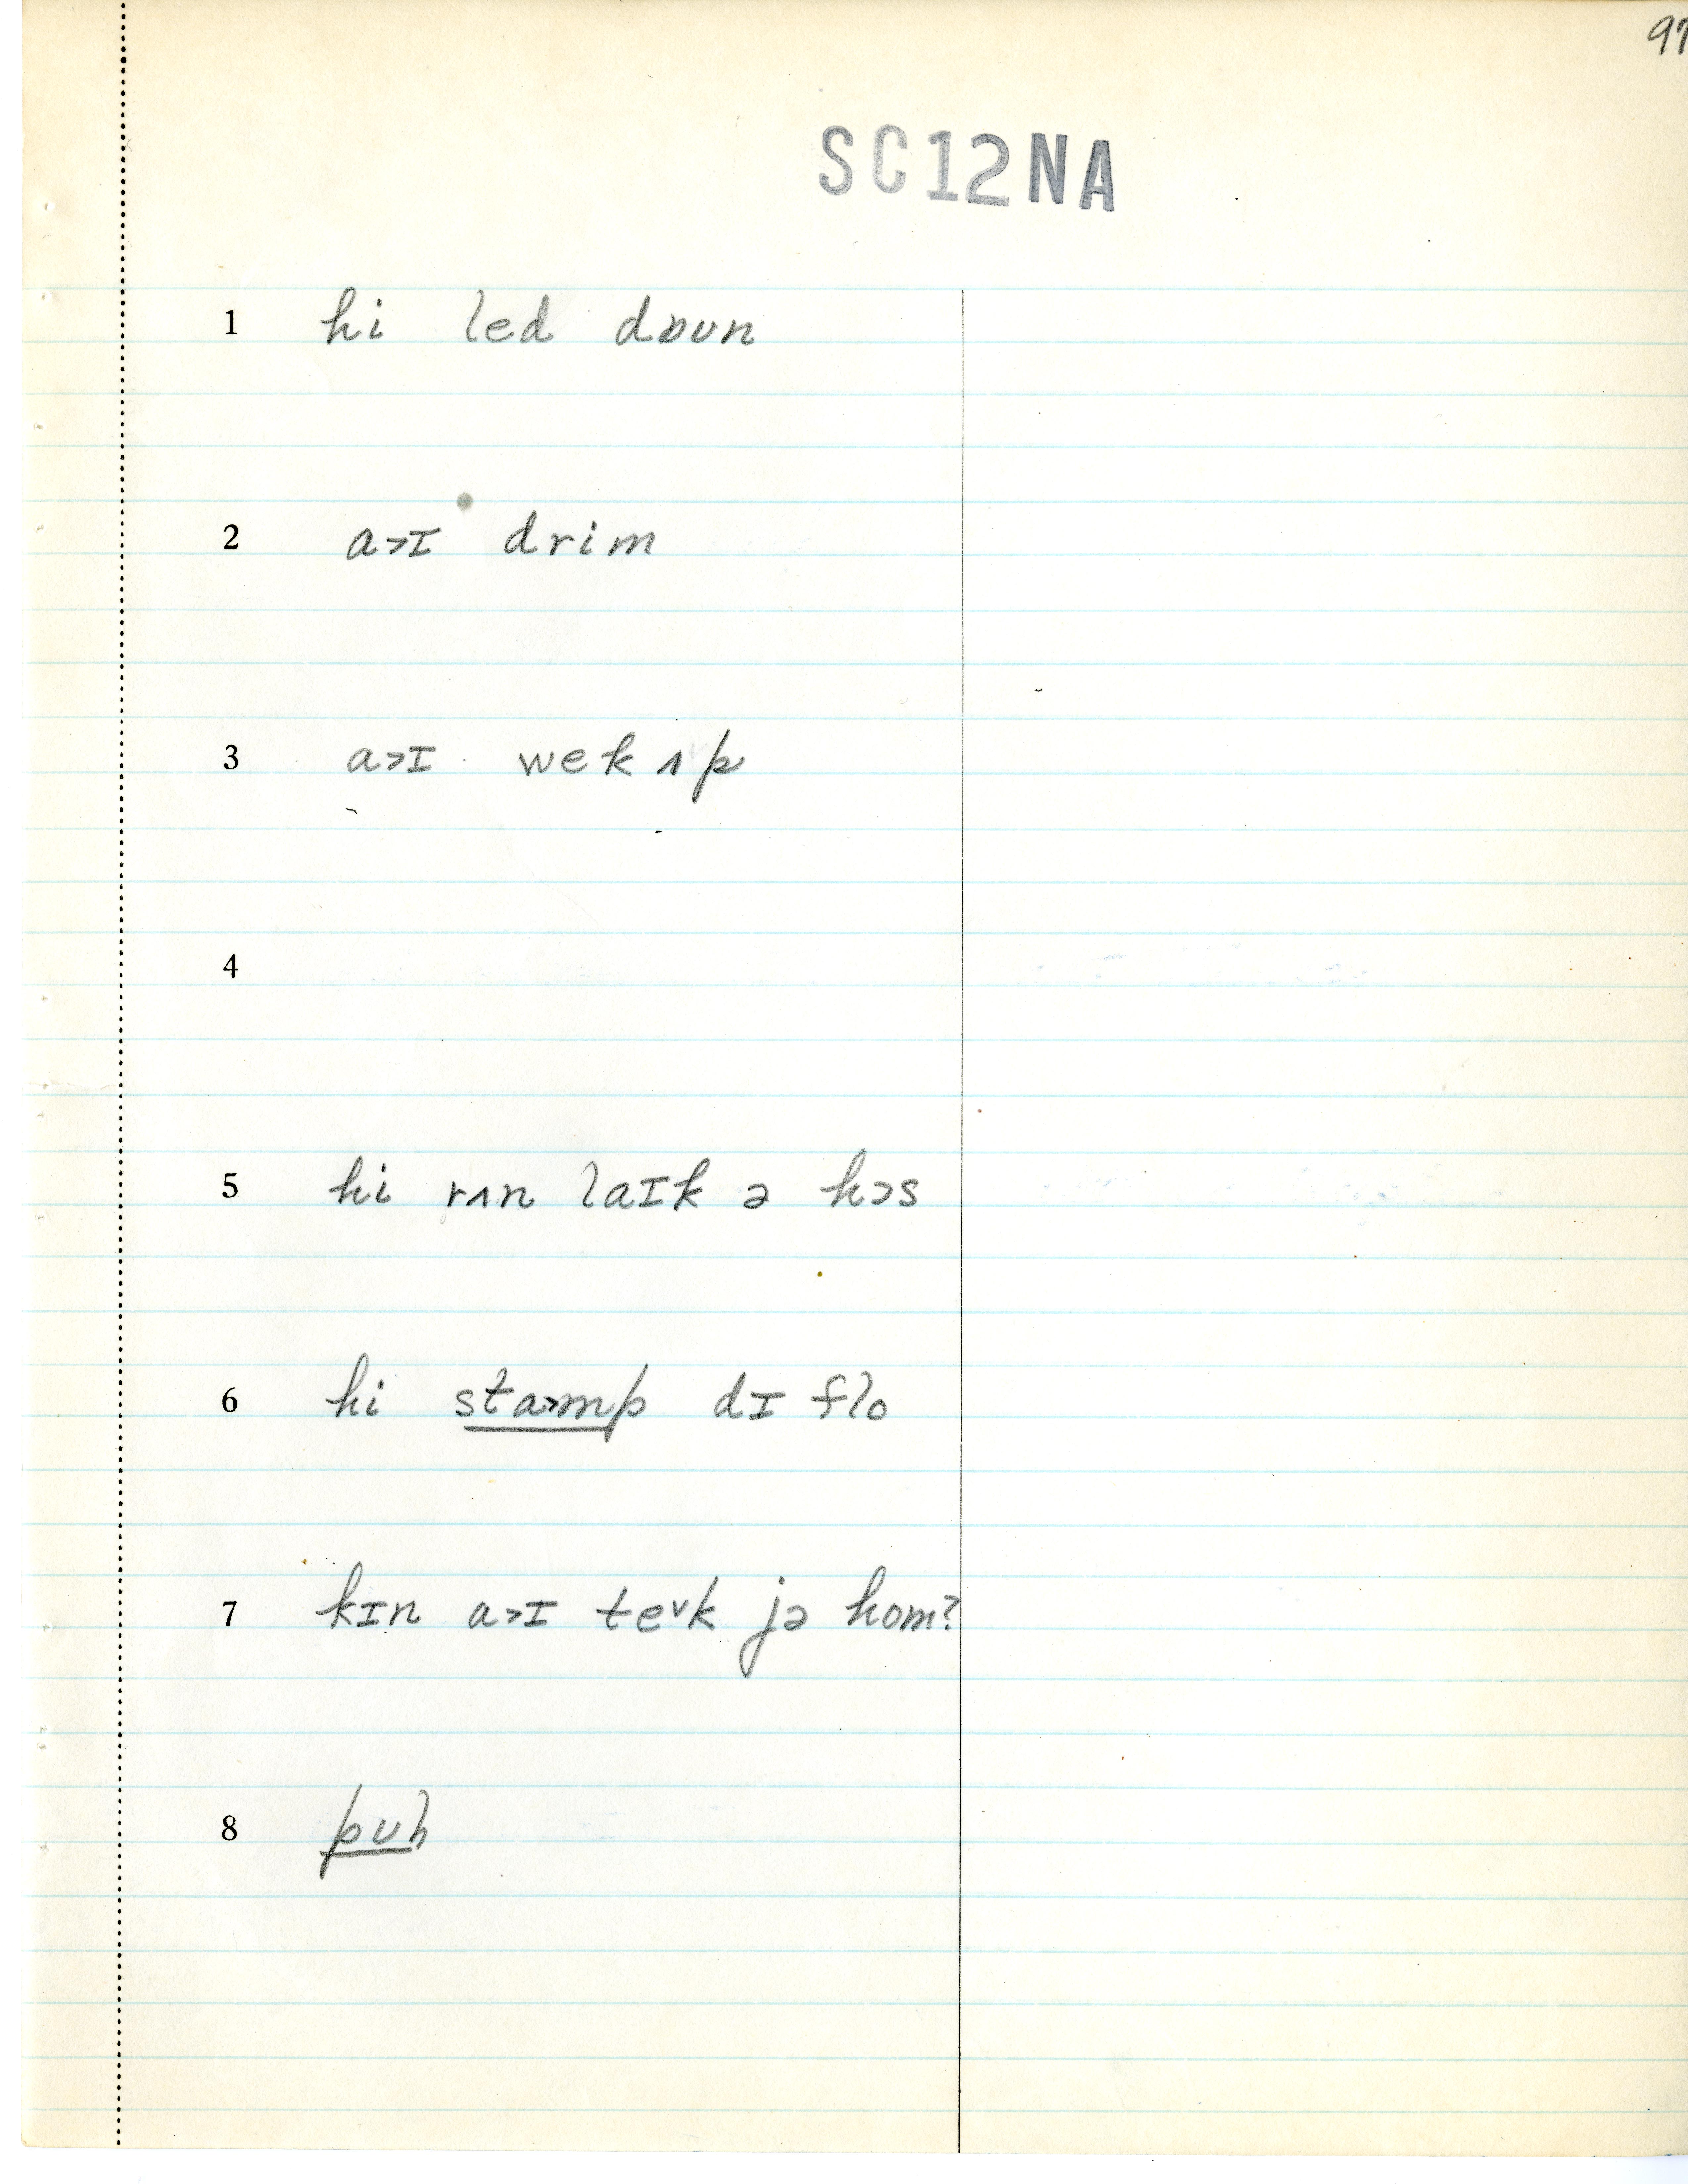 97
SC12NA
1 hi led dɒʊn
2 a>ɪ drim
3 a>ɪ wek ʌp
4
5 hi rʌn laɪk ə hɔs
6 hi sta>mp dɪ flo
7 kɪn a>ɪ te˅k jə hom?
8 pʊl